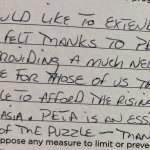 OULD LIKE TO EXTEND
FELT THANKS TO PE
ROVIDING A MUCH NEE
E FOR THOSE OF US T
LE TO AFFORD THE RISING
ASIA. PETA IS AN ESS
OF THE PUZZLE - THAN
ppose any measure to limit or preve